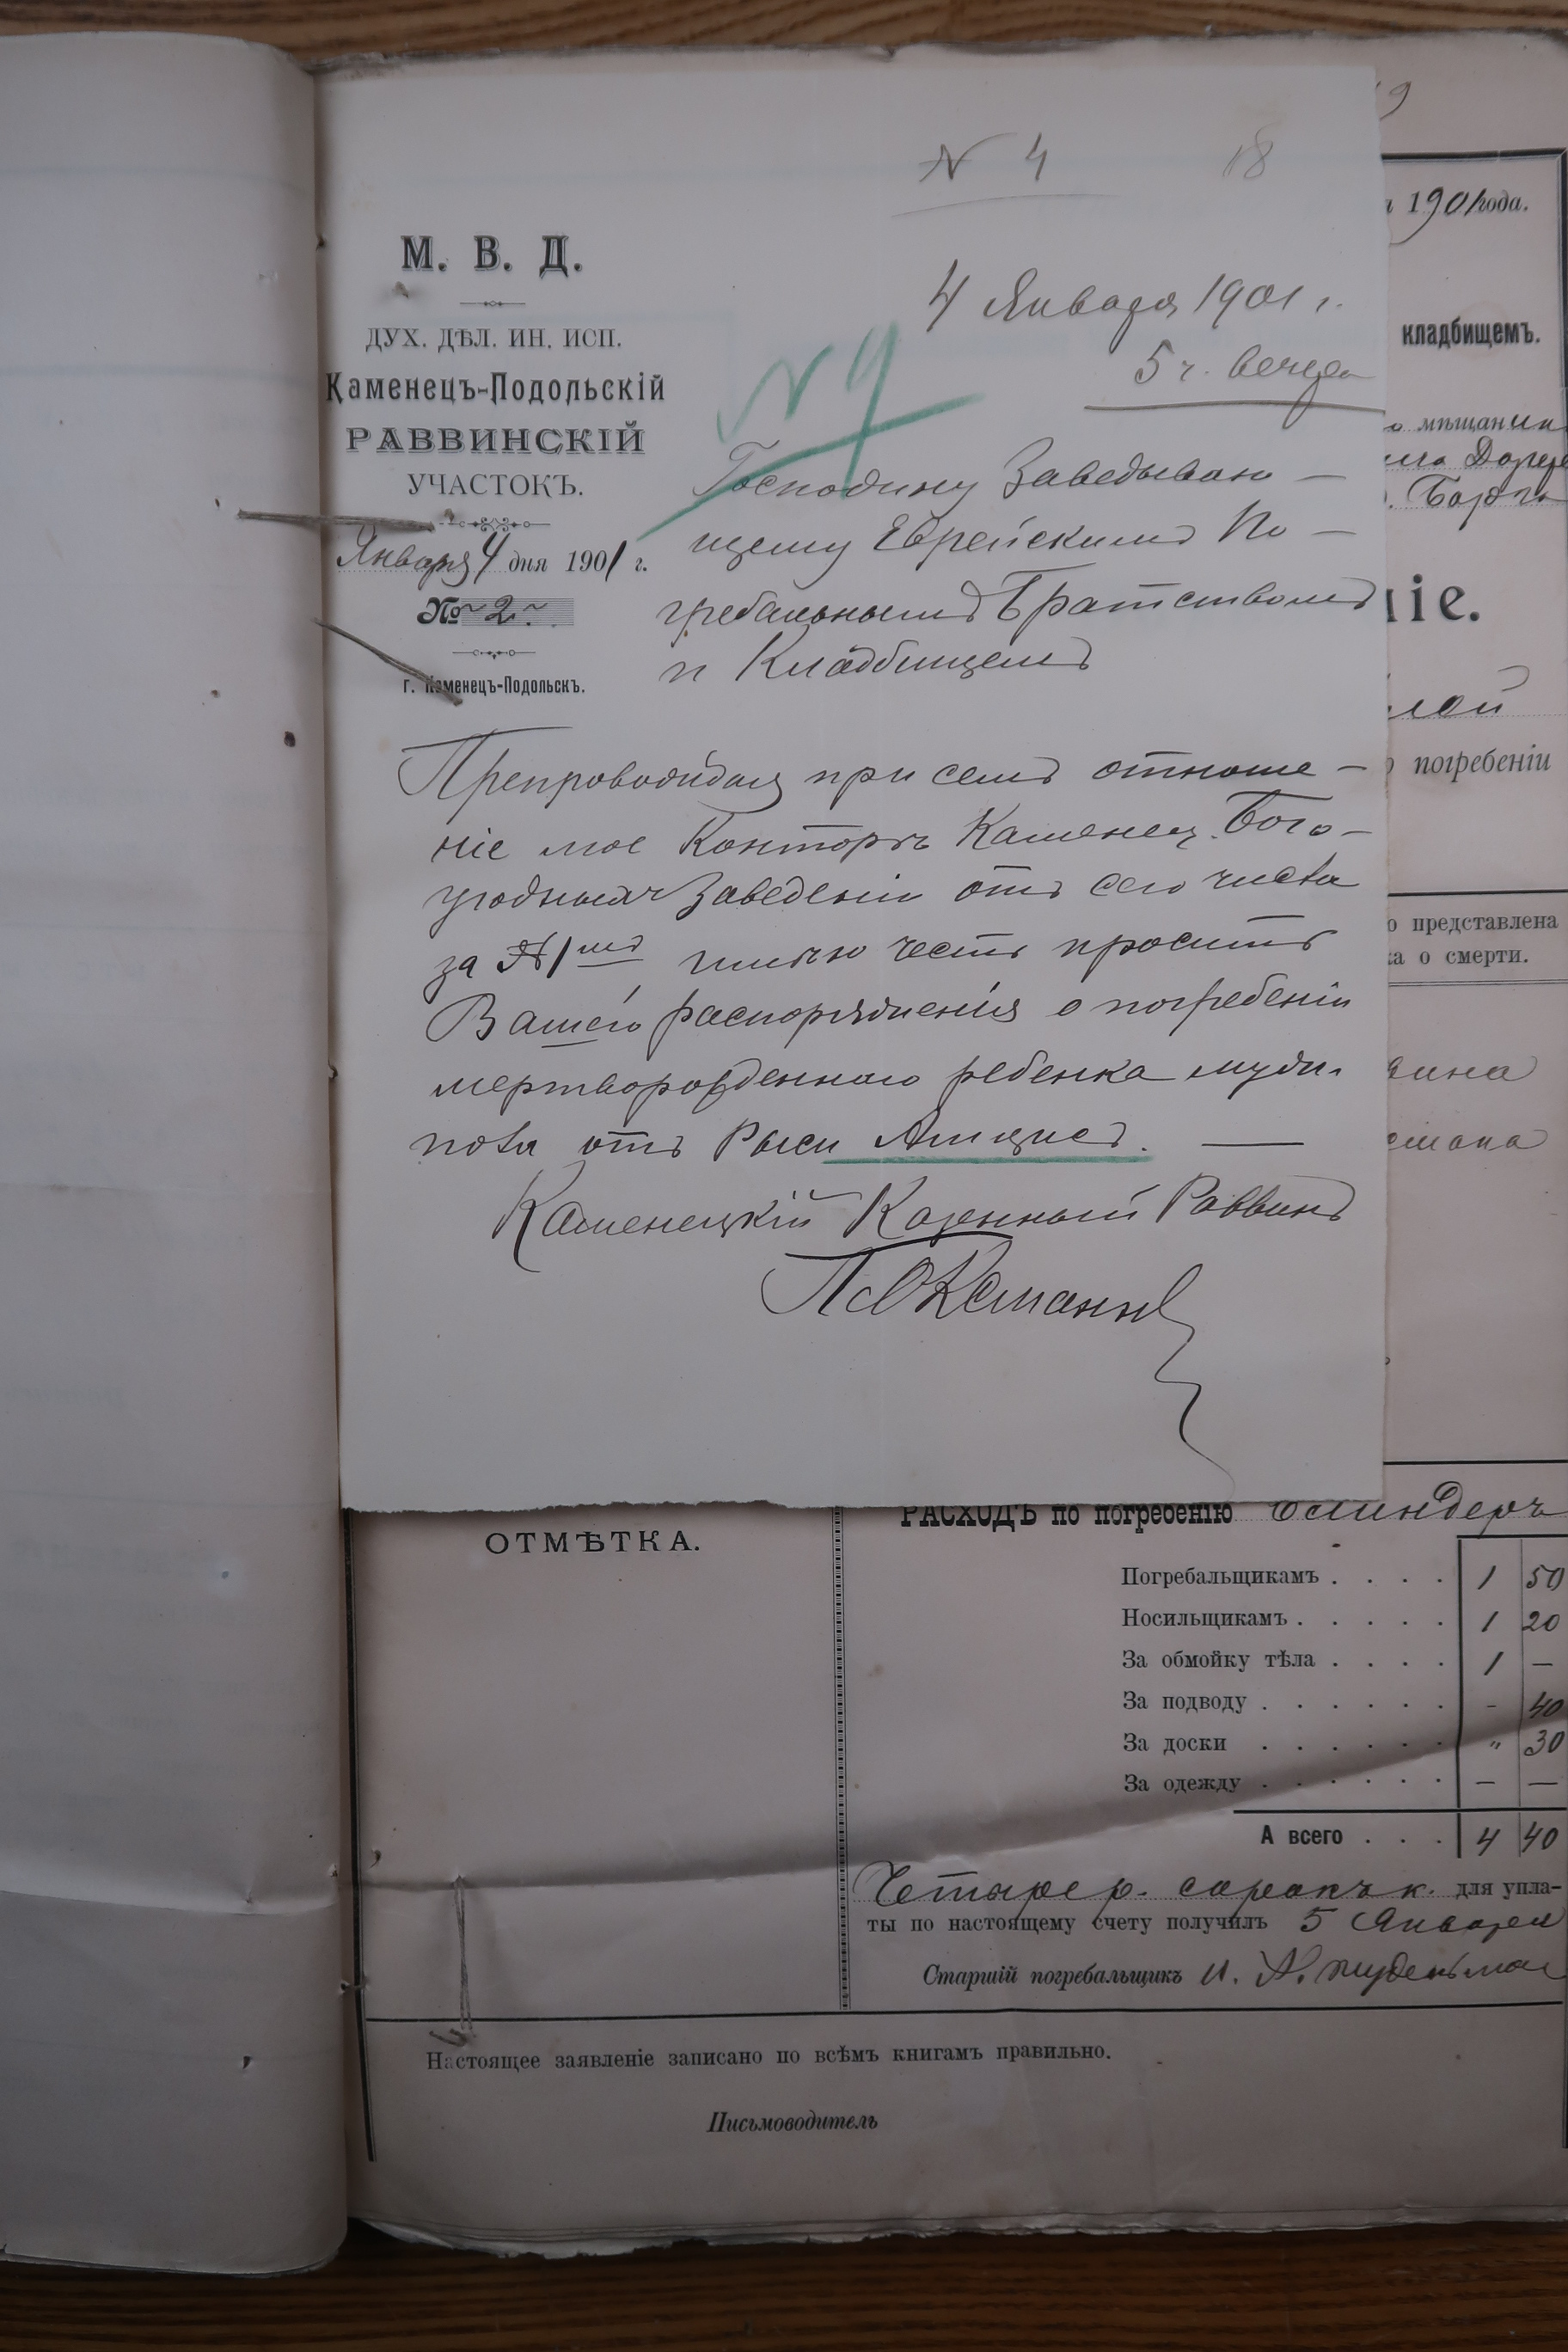 19
№ 4
18
М. В. Д.
ДУХ. ДѢЛ. ИН. ИСП.
Каменецъ-Подольскій
РАВВИНСКІЙ
УЧАСТОКЪ.
Января 4 дня 1901 г.
№ 2
г. Каменецъ-Подольскъ.
4 Января 1901 г.
5 ч. вечера
№ 4
Господину Заведываю-
щему Еврейскимъ По-
гребальнымъ Братствомъ
и Кладбищемъ
Препровождая при семъ отноше-
ніе мое Конторѣ Каменец. Бого-
угодныхъ Заведеній отъ сего числа
за №1мъ имѣю честь просить
Вашего распоряженія о погребеніи
мертворожденнаго ребенка муж.
пола отъ Рыси
Каменецкій Казенный Раввинъ
1901 года.
кладбищемъ.
мѣщанин
іе.
лой
погребеніи
о представлена
ка о смерти.
ОТМѢТКА.
РАСХОДЪ по погребенію
Погребальщикамъ . . . . 1 50
Носильщикамъ . . . . . 1 20
За обмойку тѣла . . . . 1 —
За подводу . . . . . . - 40
За доски . . . . . . " 30
За одежду . . . . . . — —
А всего . . . 4 40
Четыре р. сорокъ к. для упла-
ты по настоящему счету получилъ 5 Января
Старшій погребальщикъ
Настоящее заявленіе записано по всѣмъ книгамъ правильно.
Письмоводитель